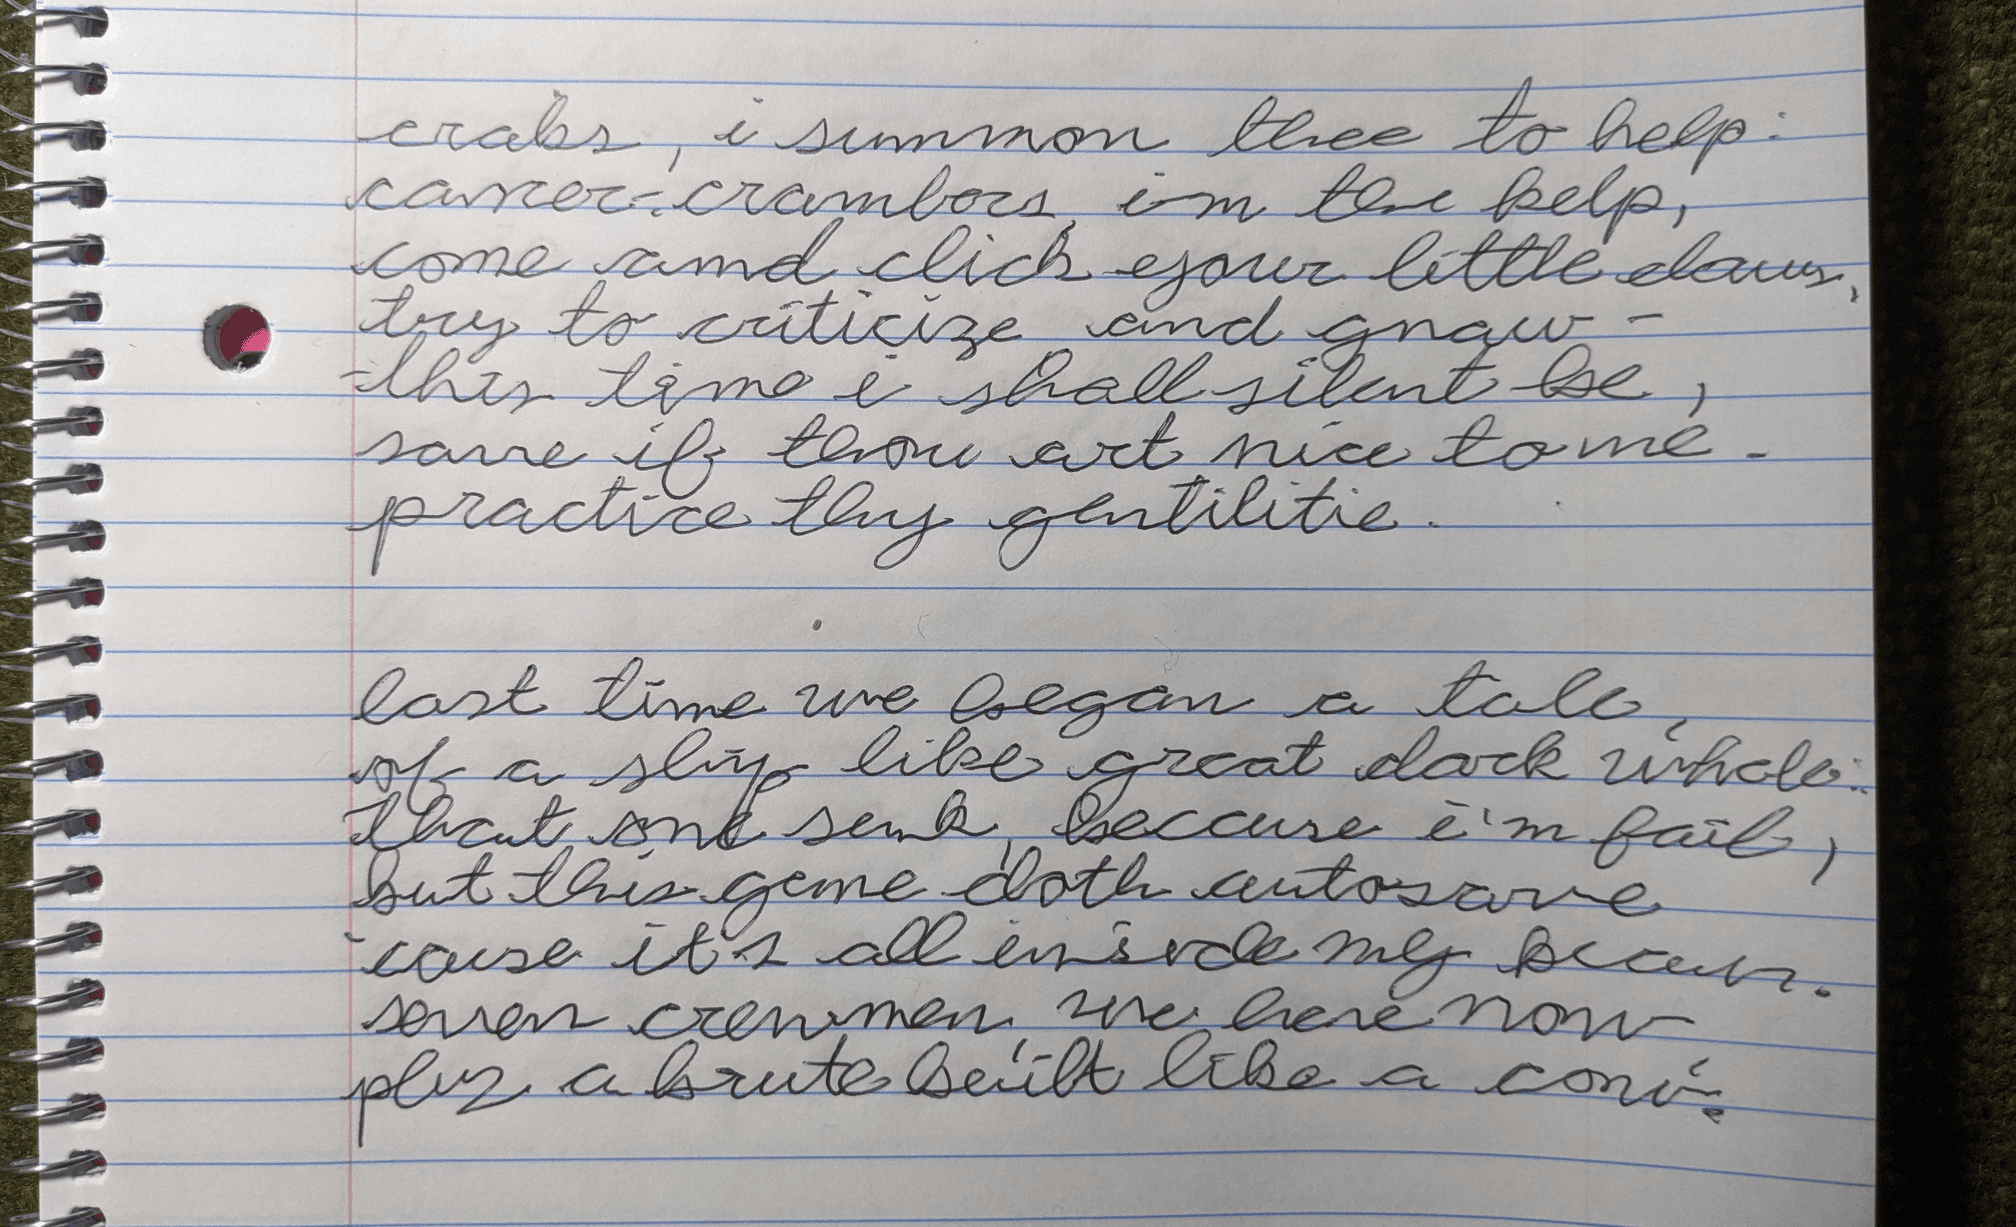 crabs, i summon thee to help:
cancer-crambers, i'm the kelp,
come and click your little claws,
try to criticize and gnaw-
this time i shall silent be,
save if thou art nice to me.
practice thy gentilitie.
last time we began a tale,
of a ship like great dark whale:
that one sunk, because i'm fail,
but this game doth autosave
'cause it's all inside my
seven crewmen, we have now
plus a brute built like a cow: